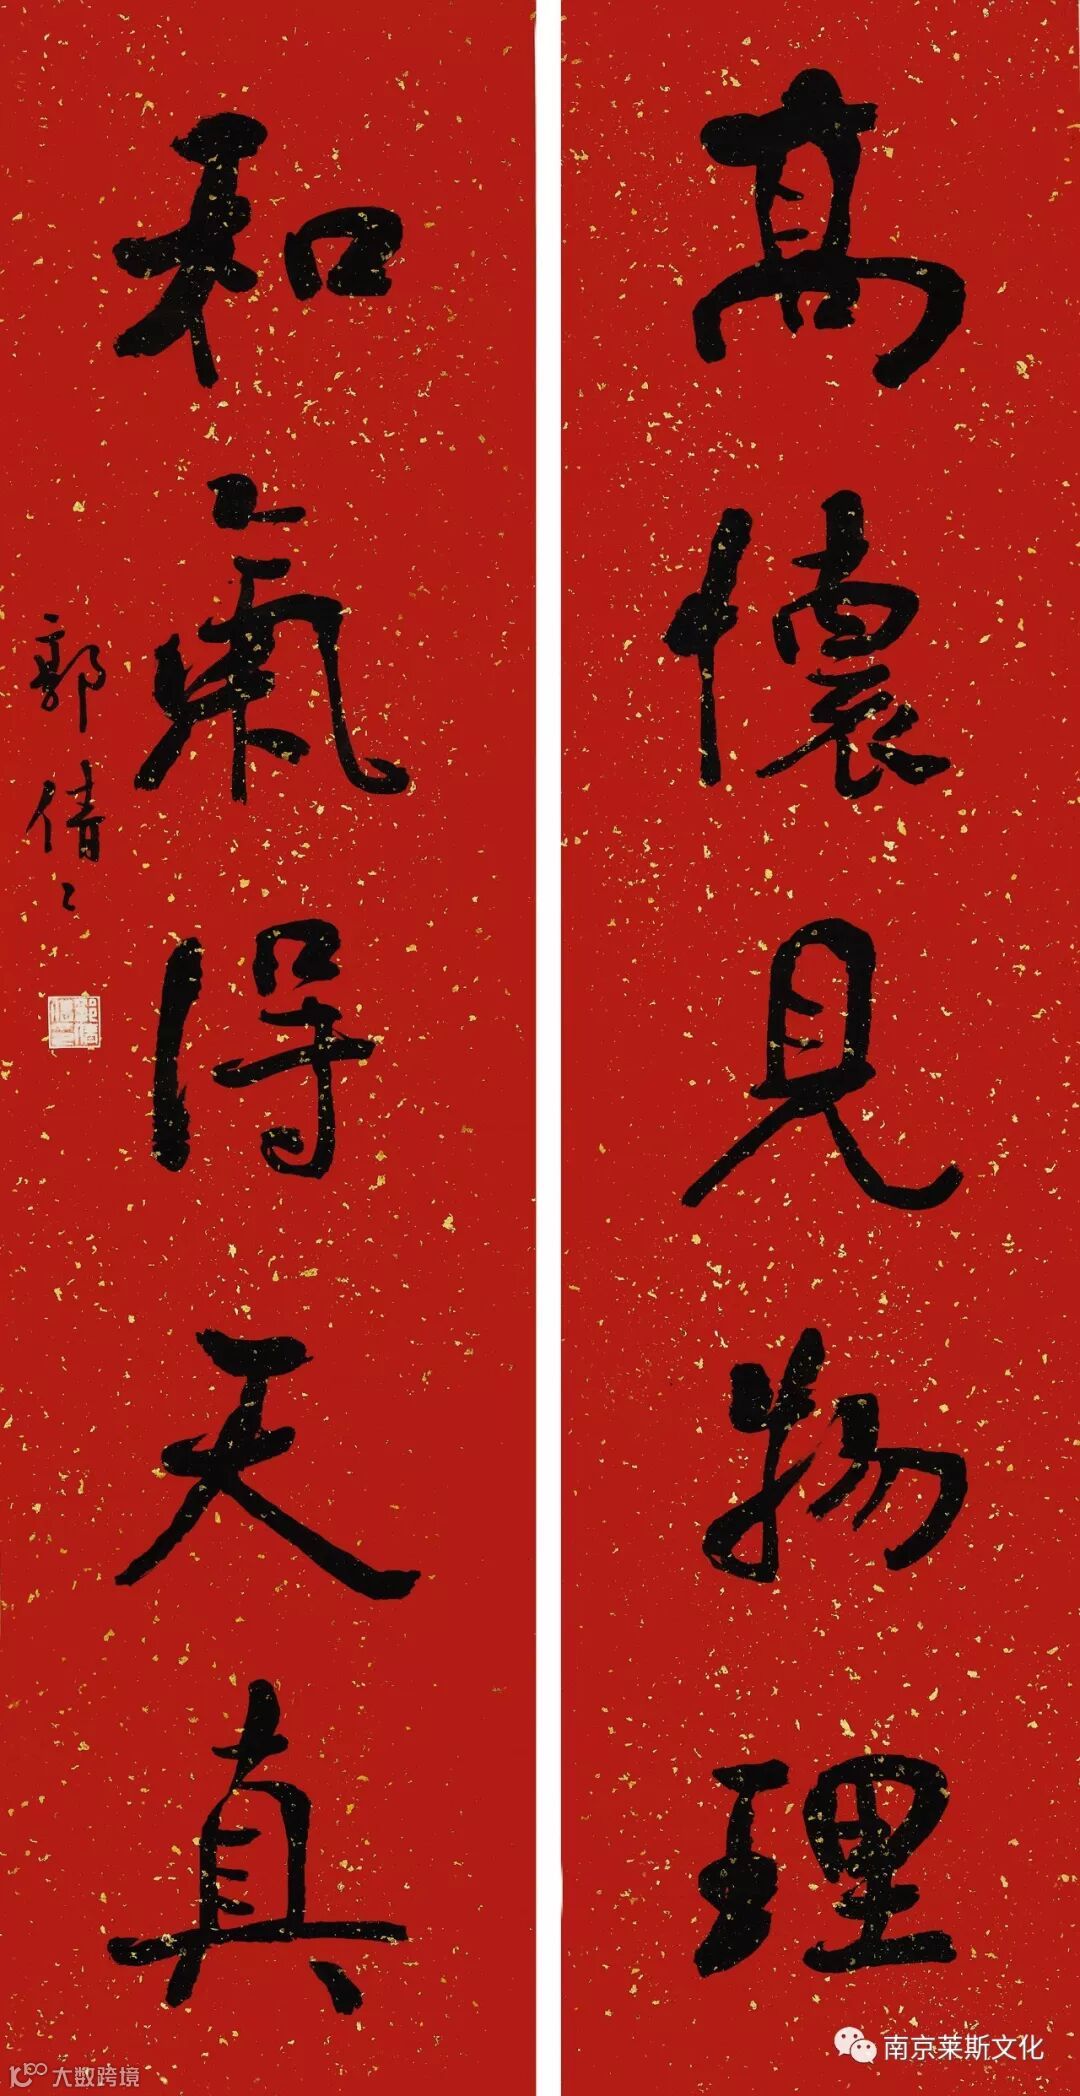 高懷見物理
和氣得天真
郭倩〻
南京莱斯文化
大数跨境